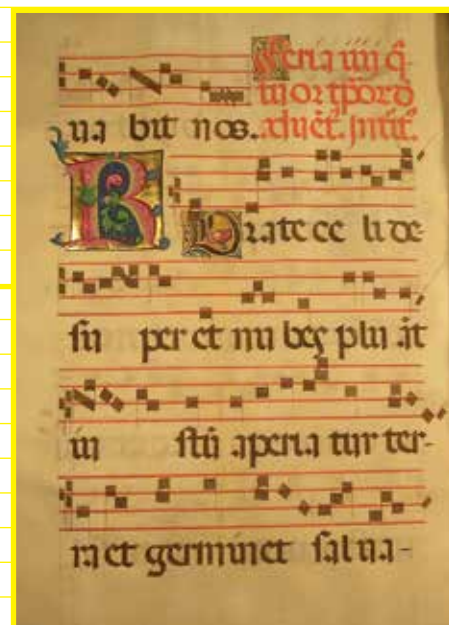 Feria iiij q̄
tuor tp̄orꝫ
na bit nos. aduēt. Intīt.
R O rate ce li de
su per et nu bes plu āt
iu stū aperia tur ter-
ra et germinet salua-